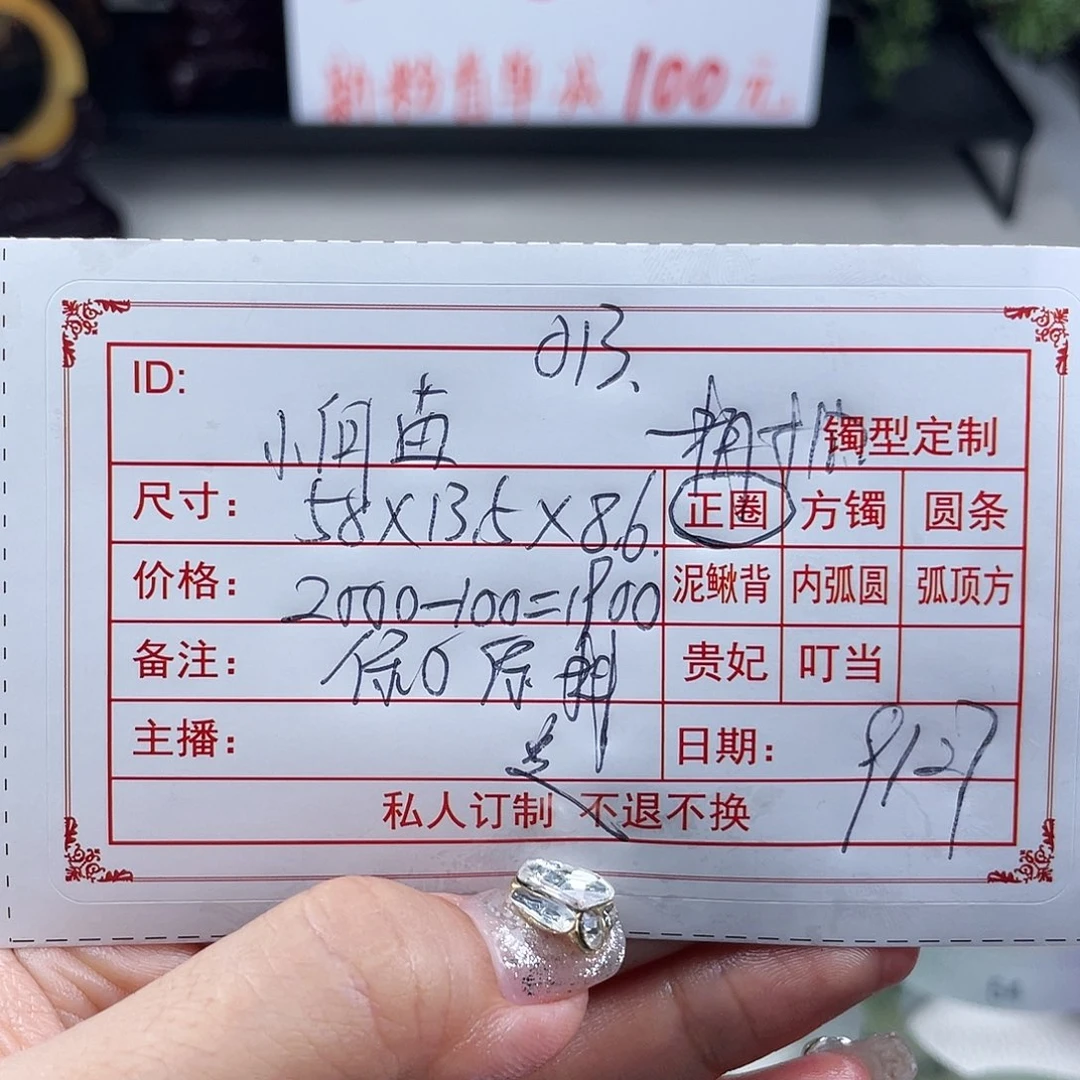 100元
013、
ID:
镯型定制
尺寸: 58×13.5×8.6. 正圈 方镯 圆条
价格: 2000-100=1900 泥鳅背 内弧圆 弧顶方
备注: 贵妃 叮当
主播: 日期: 9/27
私人订制 不退不换